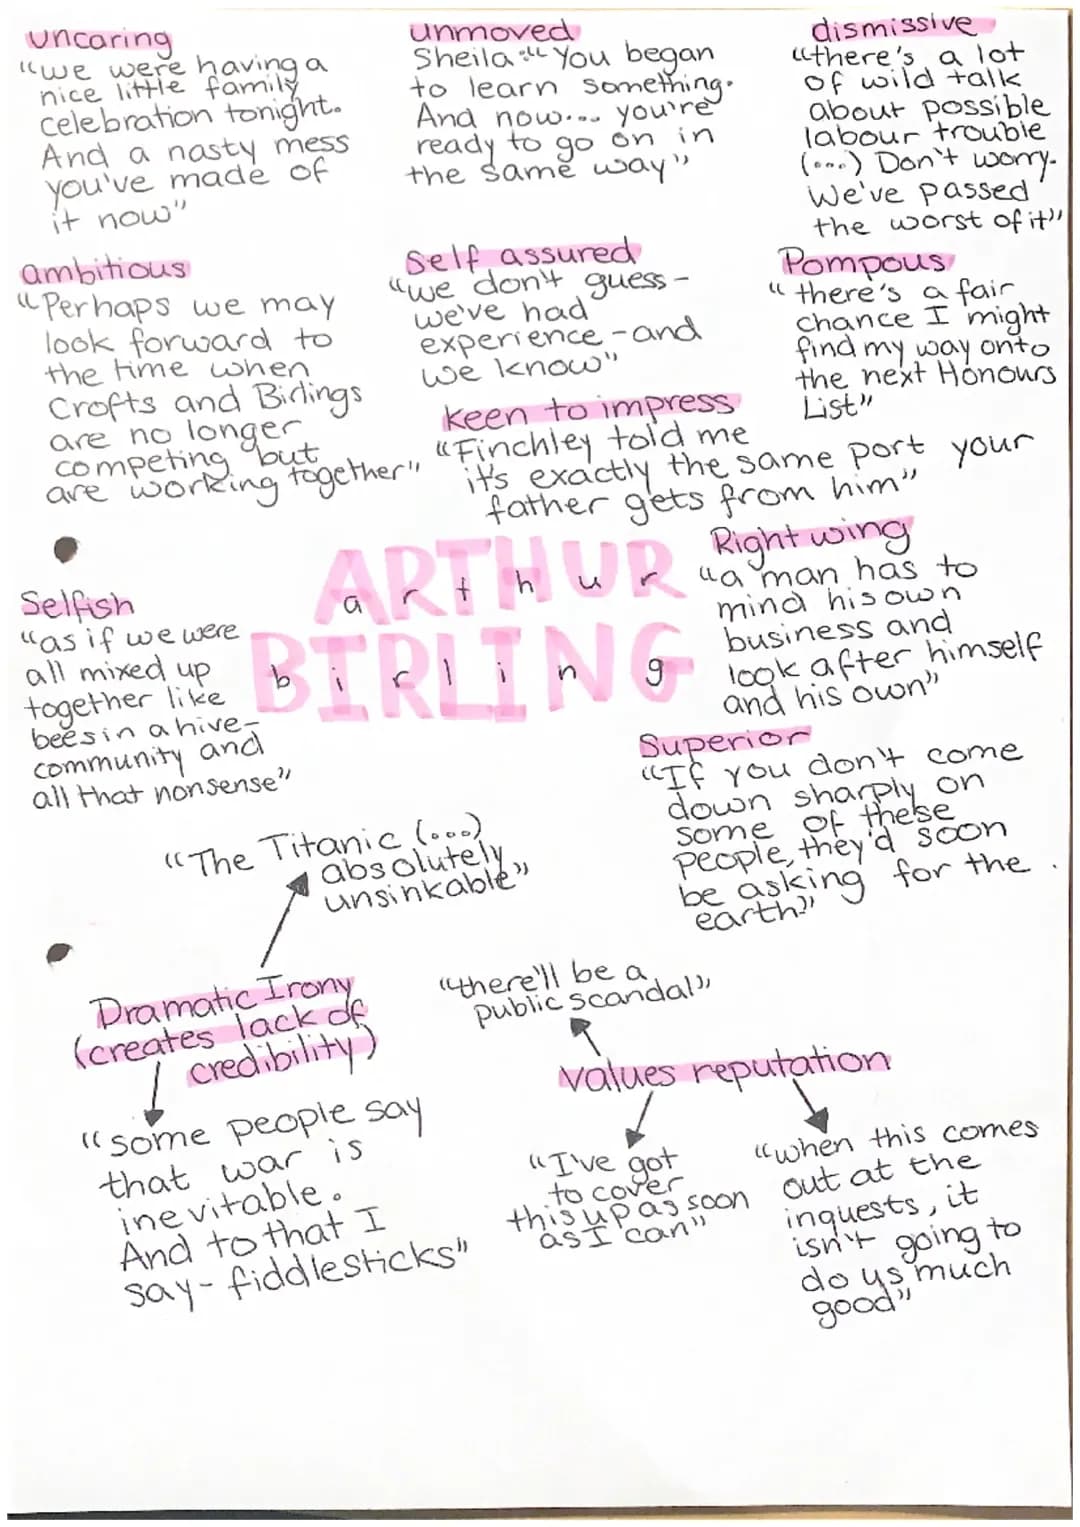 uncaring
"we were having a
nice little family
celebration tonight.
And a nasty mess
you've made of
it now"
unmoved
Sheila: "You began
to learn something.
And now.... you're
ready to go on in
the same way"
dismissive
"there's a lot
of wild talk
about possible
labour trouble
(...) Don't worry.
We've passed
the worst of it"
ambitious
"Perhaps we may
look forward to
the time when
Crofts and Birlings
are no longer
competing but
are working together"
Self assured
"we don't guess -
we've had
experience - and
we know"
Pompous
"there's a fair
chance I might
find my way onto
the next Honours
List"
keen to impress
"Finchley told me
it's exactly the same port your
father gets from him"
Right wing
"a man has to
mind his own
business and
look after himself
and his own"
ARTHUR
arthur
BIRLING
birling
Selfish
"as if we were
all mixed up
together like
bees in a hive-
community and
all that nonsense"
Superior
"If you don't come
down sharply on
some of these
people, they'd soon
be asking for the
earth."
"The Titanic (...)
absolutely
unsinkable"
Dramatic Irony
(creates lack of
credibility)
"some people say
that war is
inevitable.
And to that I
say- fiddlesticks"
"there'll be a
public scandal"
values reputation
"I've got
to cover
this up as soon
as I can"
"when this comes
out at the
inquests, it
isn't going to
do us much
good"